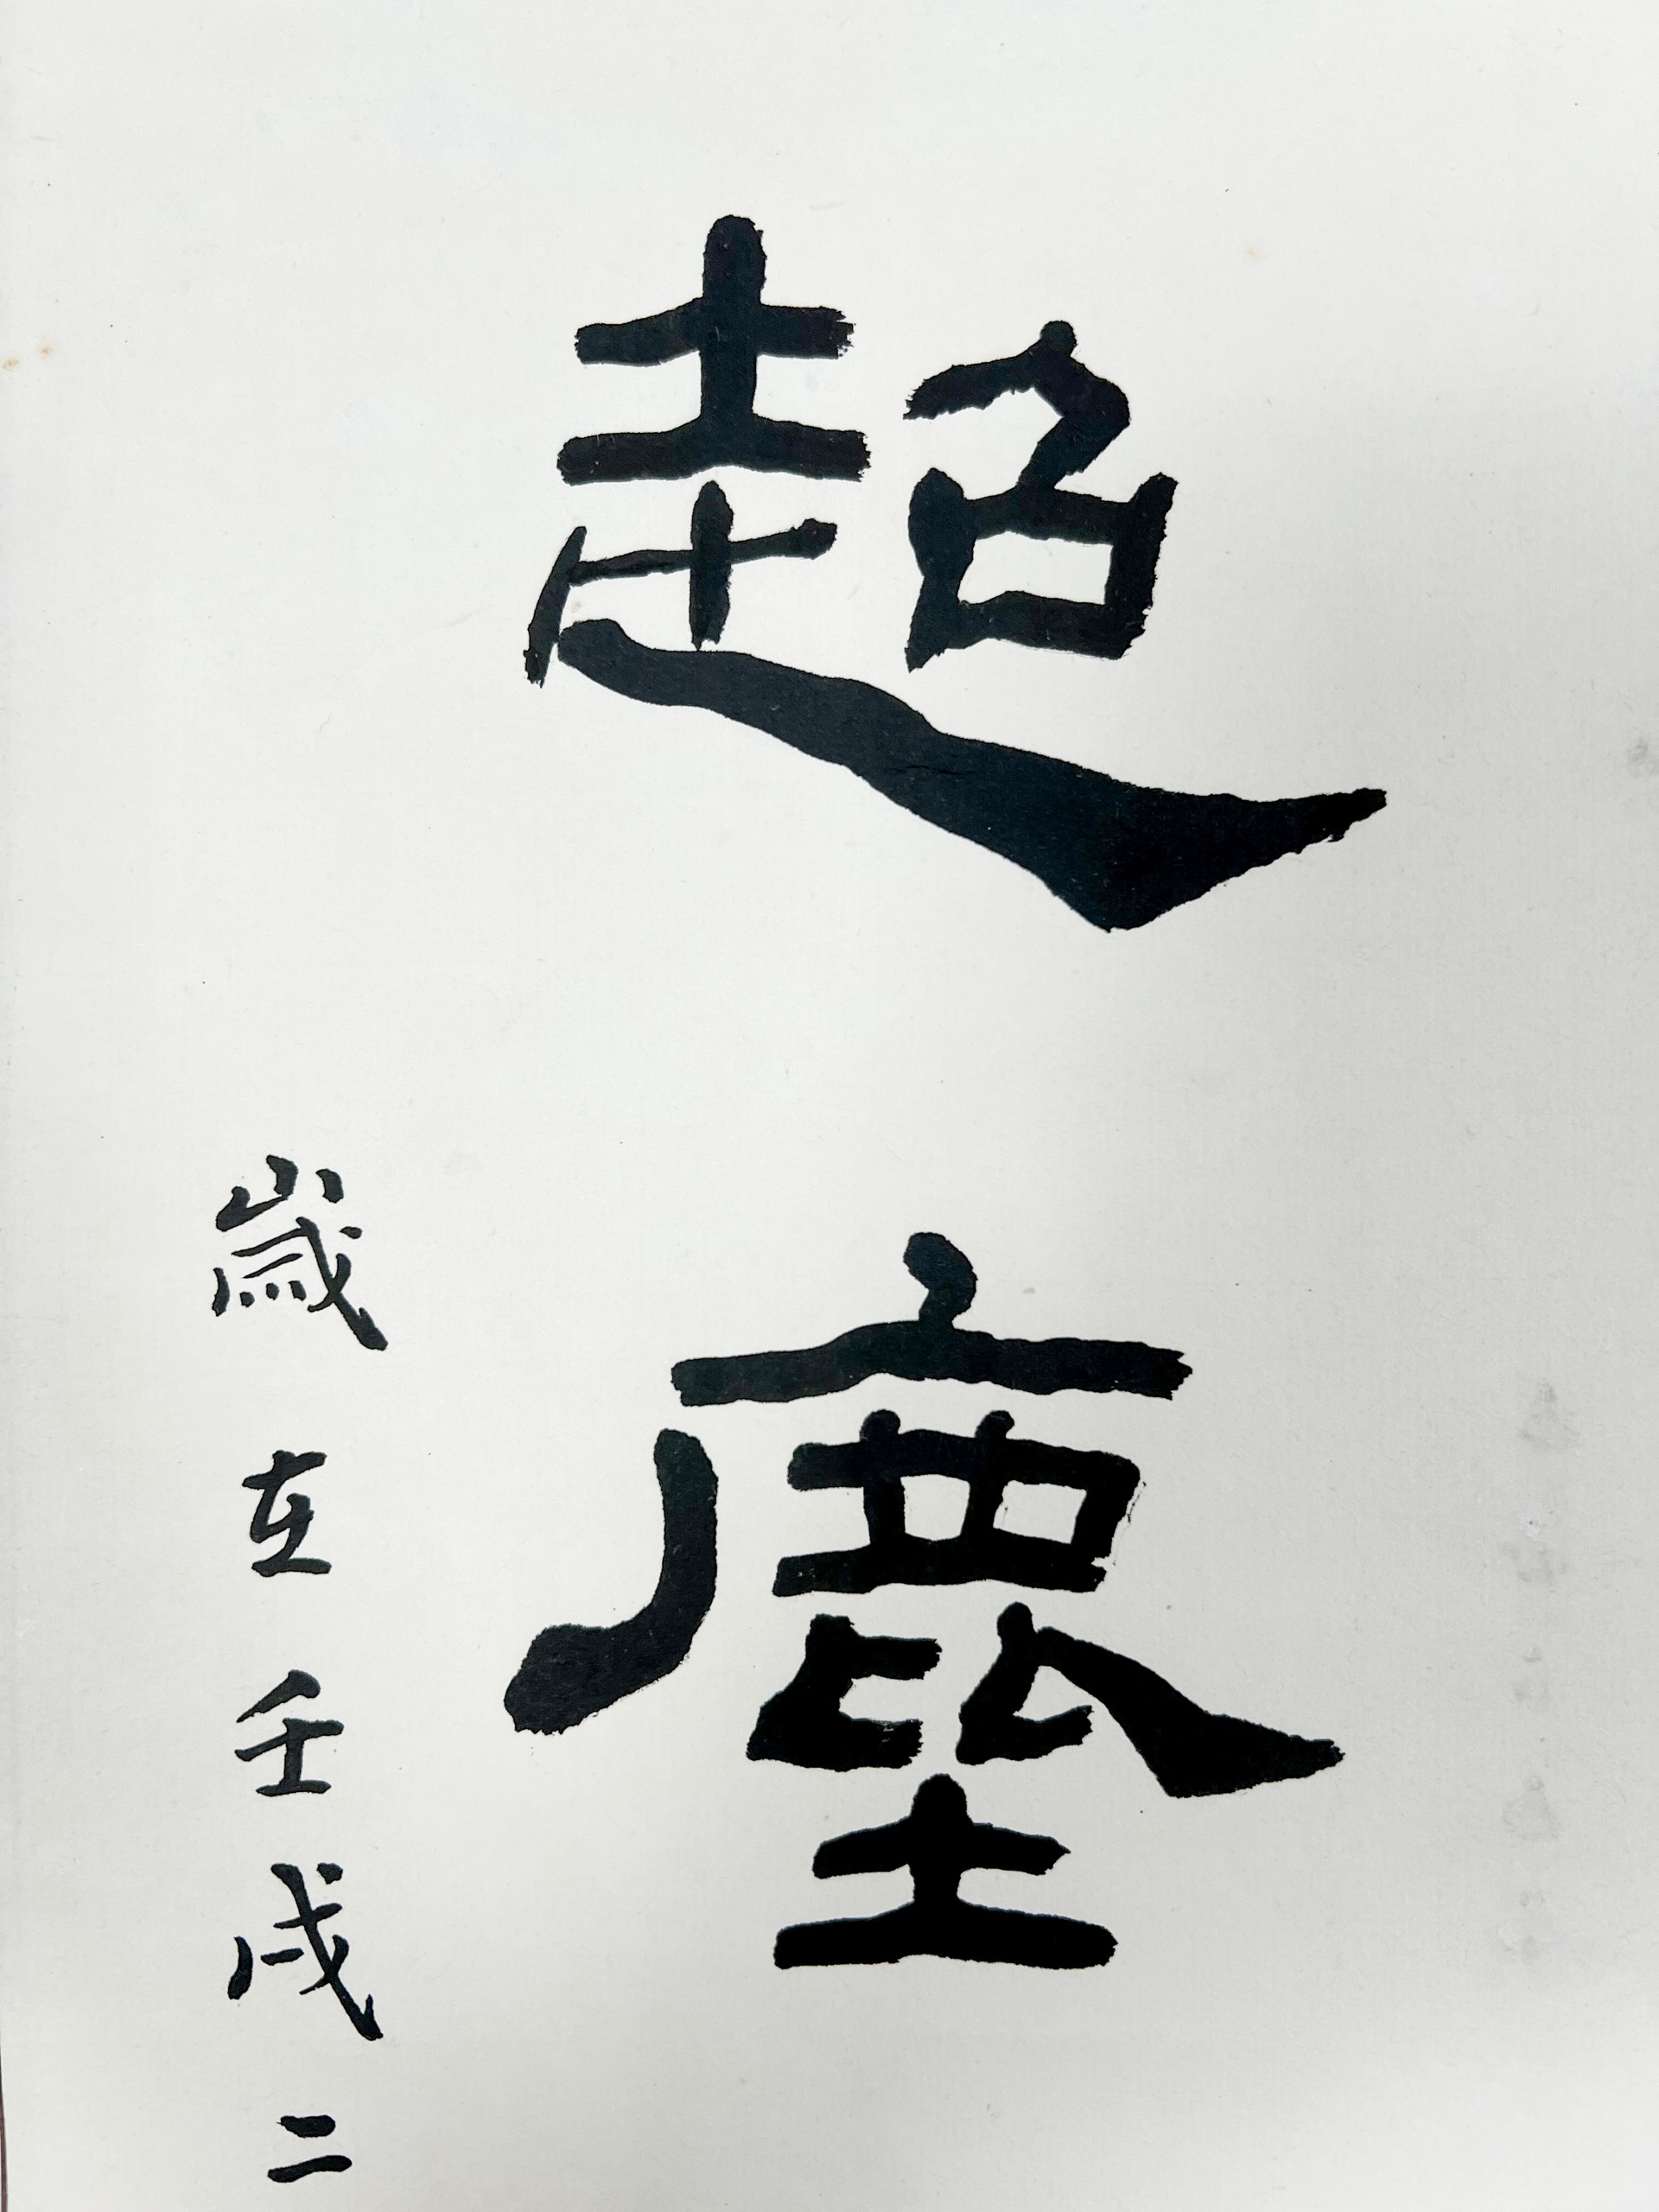 超塵
歲在壬戌二